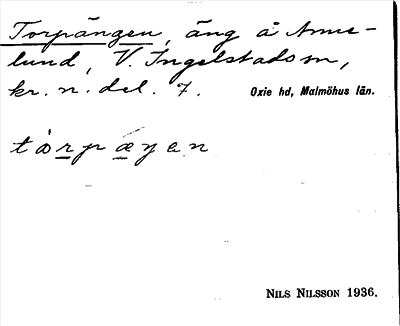 Torpängen, äng å Anne-
lund, V. Ingelstads sn,
kr. n. del. 7. Oxie hd, Malmöhus län.
tȧrpæŋen
NILS NILSSON 1936.